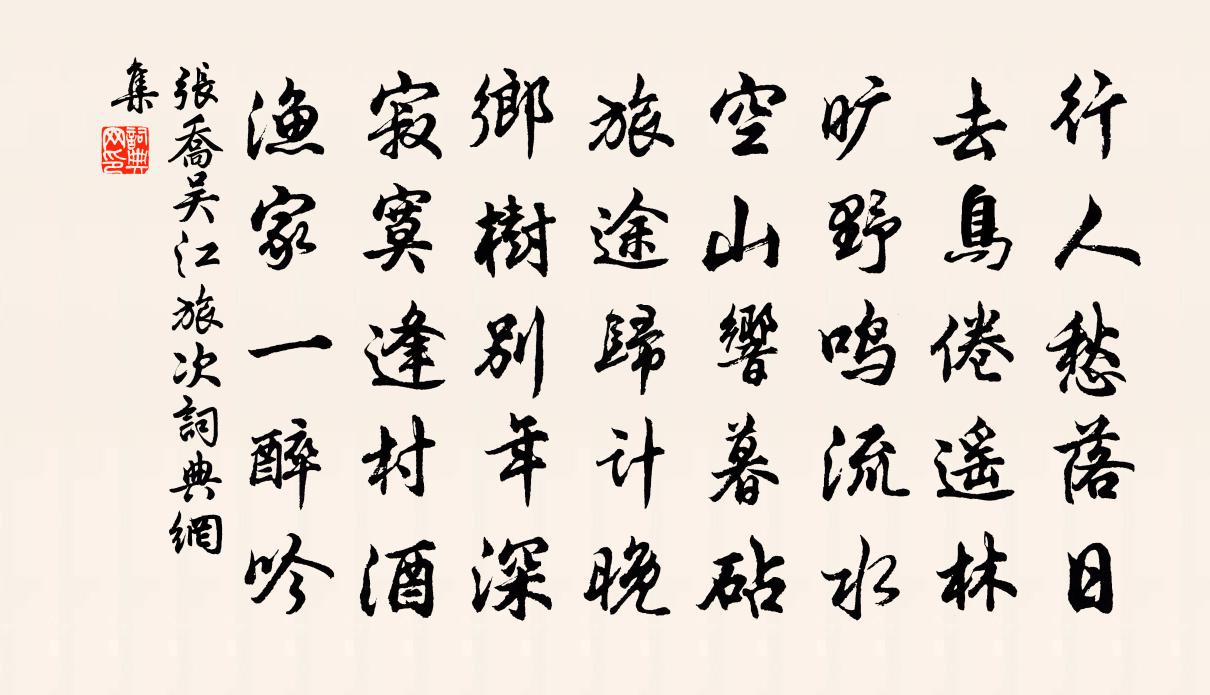 行人愁落日
去鳥倦遥林
旷野鸣流水
空山響暮砧
旅途歸计晚
鄉樹别年深
寂寞逢村酒
渔家一醉吟
張喬吴江旅次詞典網
集
詞典
网印